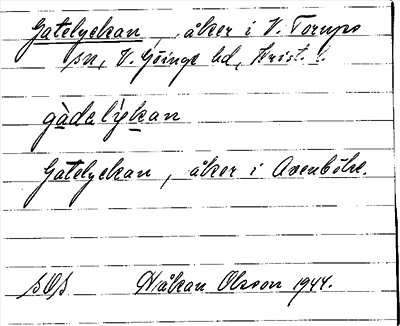 Gatelyckan, åker i V. Torups
sn, V. Göinge hd, Krist. l.
gàdelỳkan
Gatelyckan, åker i Axenbölne.
sOs Håkan Olsson 1944.